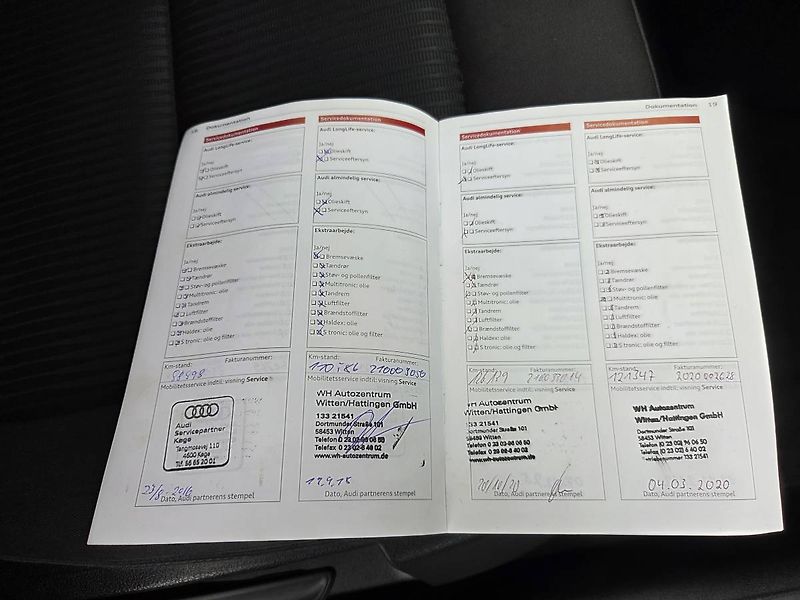 18 Dokumentation
Servicedokumentation
Audi LongLife-service:
Ja/nej
Olieskift
Serviceeftersyn
Audi almindelig service:
Ja/nej
Olieskift
Serviceeftersyn
Ekstraarbejde:
Ja/nej
Bremsevæske
Tændrør
Støv- og pollenfilter
Multitronic: olie
Tandrem
Luftfilter
Brændstoffilter
Haldex: olie
S tronic: olie og filter
Km-stand: Fakturanummer:
Mobilitetsservice indtil: visning Service
Audi
Servicepartner
Køge
Tangmosevej 110
4600 Køge
Tlf. 56 65 20 01
23/8-2016
Dato, Audi partnerens stempel
Servicedokumentation
Audi LongLife-service:
Ja/nej
Olieskift
Serviceeftersyn
Audi almindelig service:
Ja/nej
Olieskift
Serviceeftersyn
Ekstraarbejde:
Ja/nej
Bremsevæske
Tændrør
Støv- og pollenfilter
Multitronic: olie
Tandrem
Luftfilter
Brændstoffilter
Haldex: olie
S tronic: olie og filter
Km-stand: Fakturanummer:
Mobilitetsservice indtil: visning Service
WH Autozentrum
Witten/Hattingen GmbH
133 21541
Dortmunder Straße 101
58453 Witten
Telefon
Telefax 0 23 02-8 40 02
www.wh-autozentrum.de
12.9.18
Dato, Audi partnerens stempel
Dokumentation 19
Servicedokumentation
Audi LongLife-service:
Ja/nej
Olieskift
Serviceeftersyn
Audi almindelig service:
Ja/nej
Olieskift
Serviceeftersyn
Ekstraarbejde:
Ja/nej
Bremsevæske
Tændrør
Støv- og pollenfilter
Multitronic: olie
Tandrem
Luftfilter
Brændstoffilter
Haldex: olie
S tronic: olie og filter
Km-stand: Fakturanummer:
Mobilitetsservice indtil: visning Service
WH Autozentrum
Witten/Hattingen GmbH
133 21541
Dortmunder Straße 101
58453 Witten
Telefon
Telefax 0 23 02-8 40 02
www.wh-autozentrum.de
Dato, Audi partnerens stempel
Servicedokumentation
Audi LongLife-service:
Ja/nej
Olieskift
Serviceeftersyn
Audi almindelig service:
Ja/nej
Olieskift
Serviceeftersyn
Ekstraarbejde:
Ja/nej
Bremsevæske
Tændrør
Støv- og pollenfilter
Multitronic: olie
Tandrem
Luftfilter
Brændstoffilter
Haldex: olie
S tronic: olie og filter
Km-stand: Fakturanummer:
121347 2020002028
Mobilitetsservice indtil: visning Service
WH Autozentrum
Witten/Hattingen GmbH
Dortmunder Straße 101
58453 Witten
Telefon (0 23 02) 96 06 50
Telefax (0 23 02) 8 40 02
133 21541
04.03.2020
Dato, Audi partnerens stempel